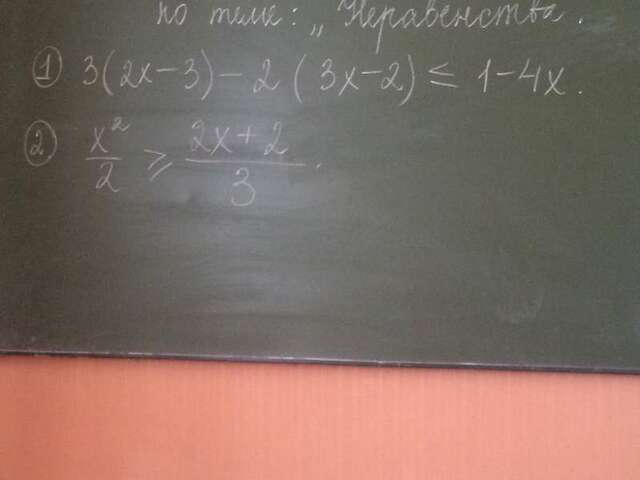 по теме: „Неравенства.
① 3(2x-3)-2(3x-2) ≤ 1-4x.
② x²/2 ⩾ (2x+2)/3.